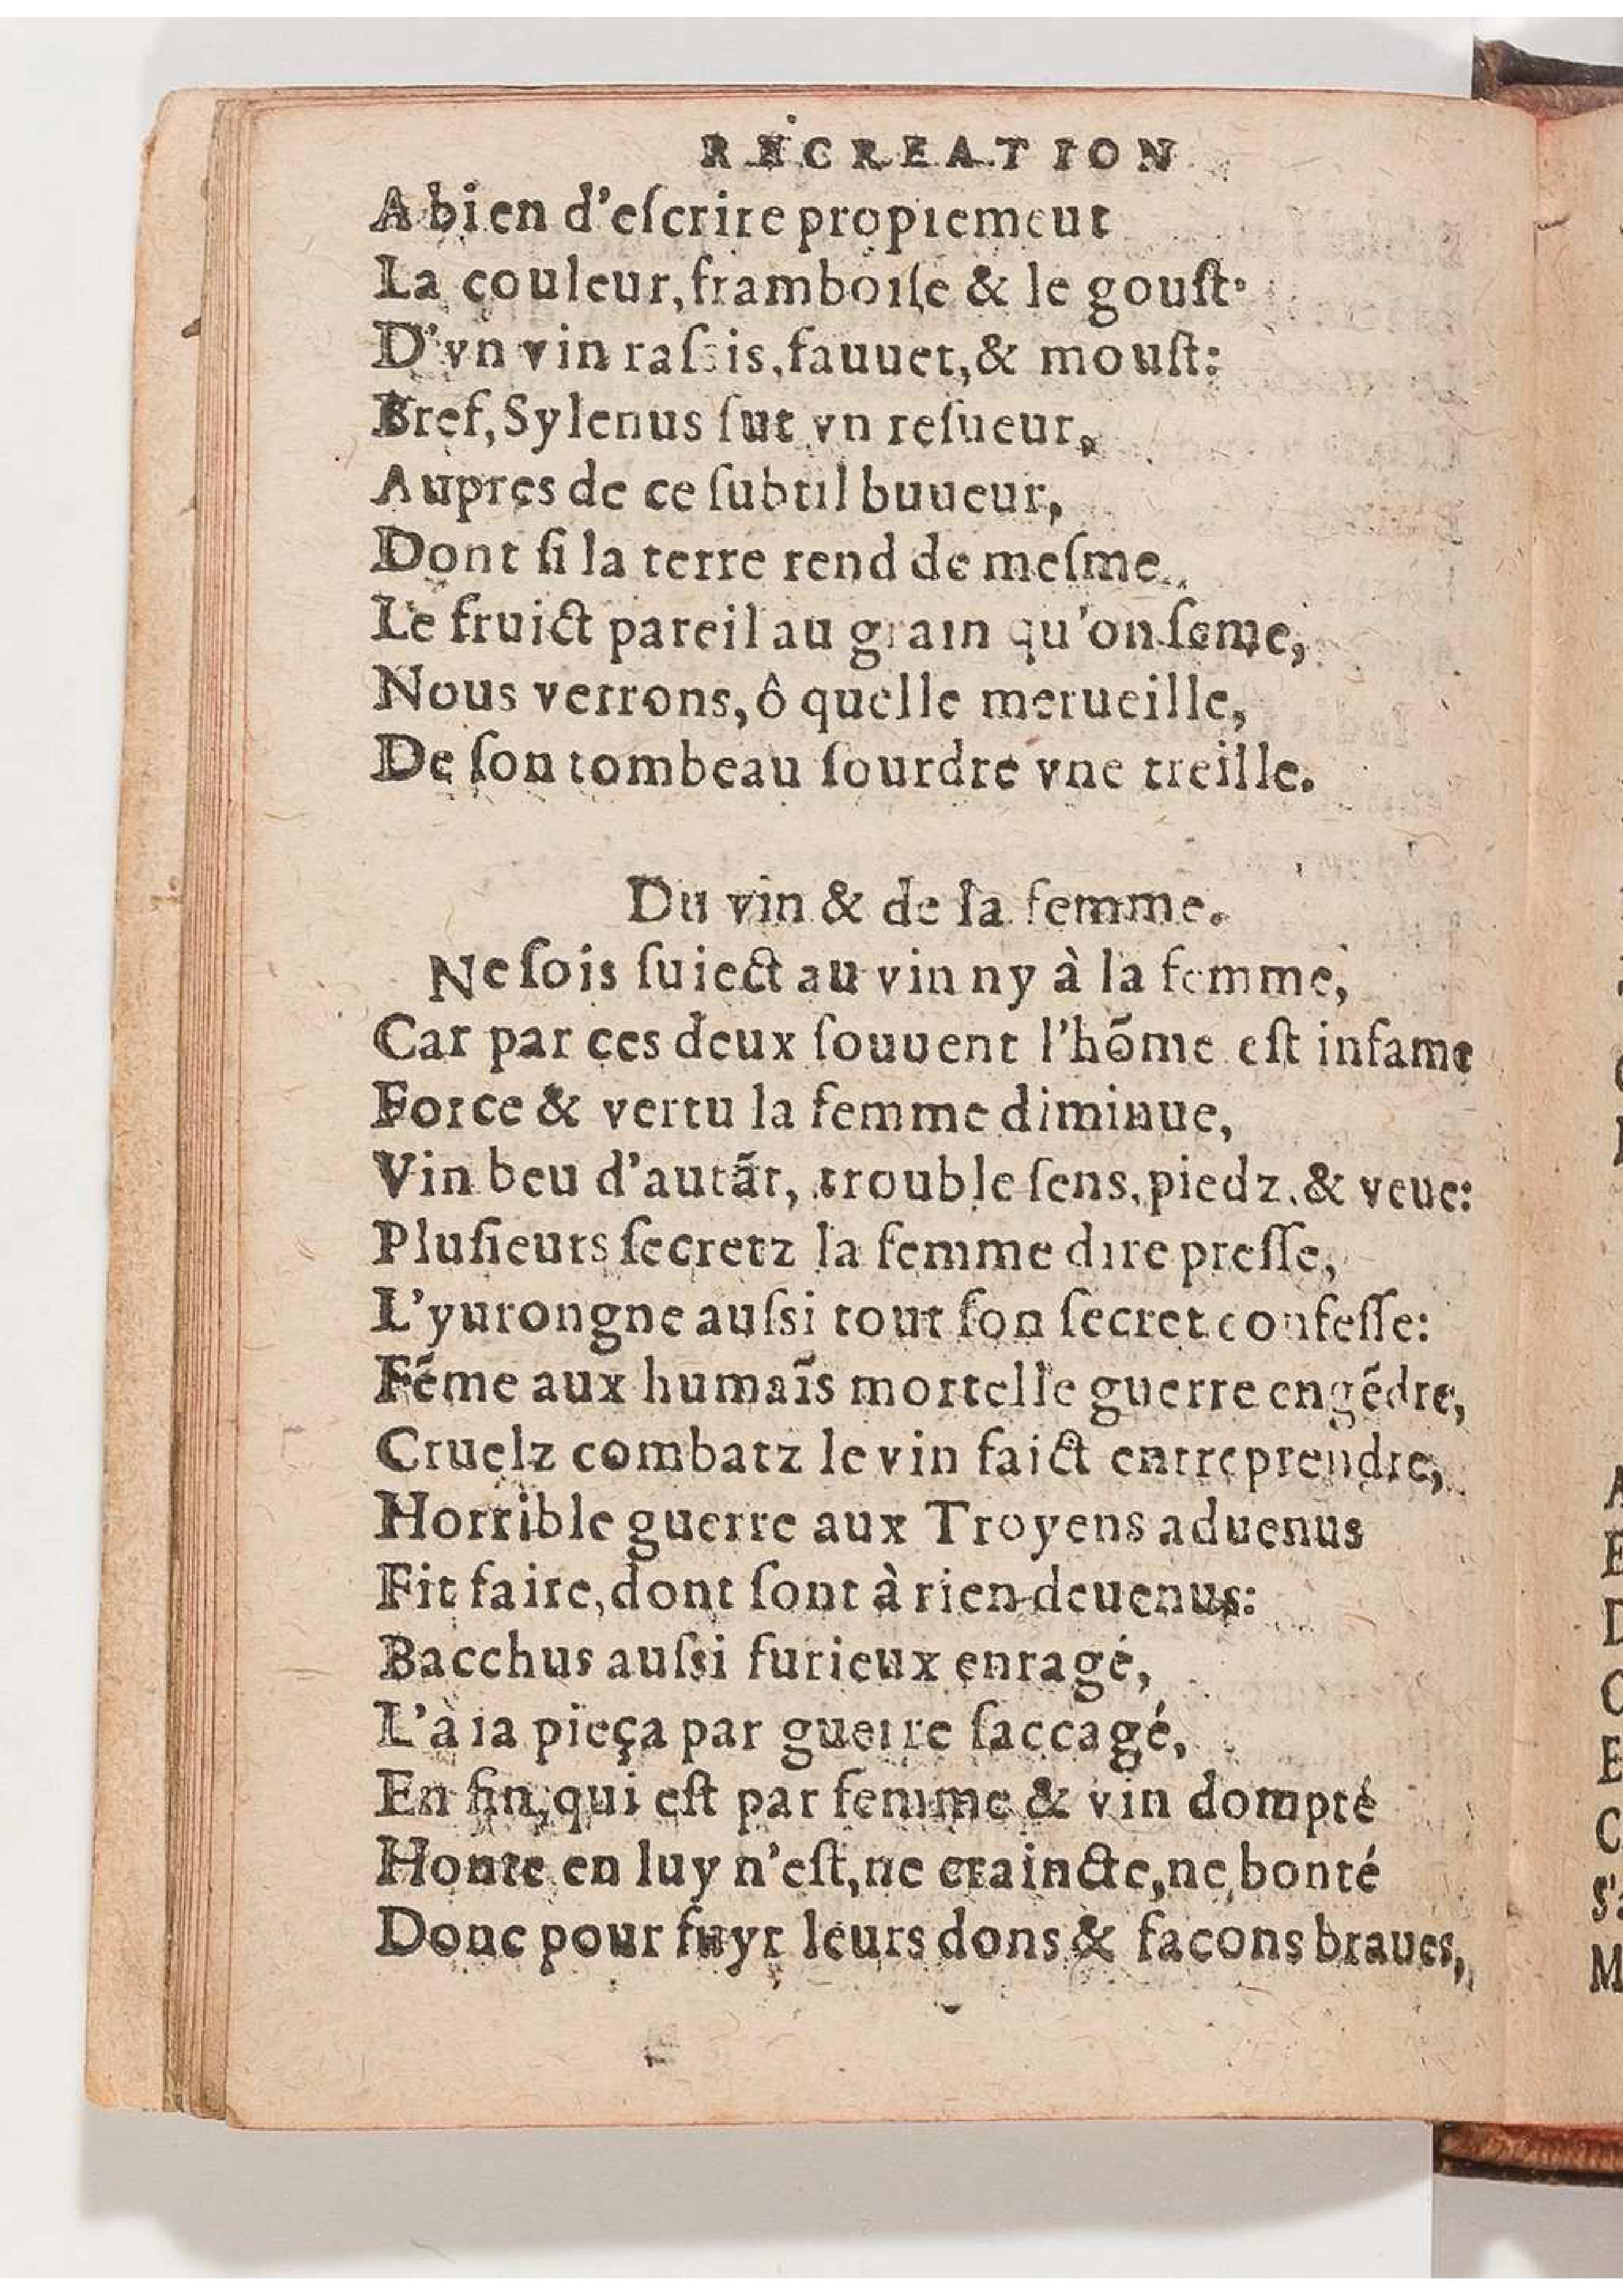 RECREATION
A bien d'eſcrire propremeut
La couleur, framboiſe & le gouſt
D'vn vin raſsis, fauuet, & mouſt:
Bref, Sylenus fut vn reſueur,
Aupres de ce ſubtil buueur,
Dont ſi la terre rend de meſme
Le fruict pareil au grain qu'on ſeme,
Nous verrons, ô quelle merueille,
De ſon tombeau ſourdre vne treille.
Du vin & de la femme.
Ne ſois ſuiect au vin ny à la femme,
Car par ces deux ſouuent l'hõme eſt infame
Force & vertu la femme diminue,
Vin beu d'autãt, trouble ſens, piedz, & veue:
Pluſieurs ſecretz la femme dire preſſe,
L'yurongne auſsi tout ſon ſecret confeſſe:
Fẽme aux humaĩs mortelle guerre engẽdre,
Cruelz combatz le vin faict entreprendre,
Horrible guerre aux Troyens aduenus
Fit faire, dont ſont à rien deuenus:
Bacchus auſsi furieux enragé,
L'à ia pieça par guerre ſaccagé,
En fin, qui eſt par femme & vin dompté
Honte en luy n'eſt, ne craincte, ne bonté
Donc pour fuyr leurs dons & façons braues,